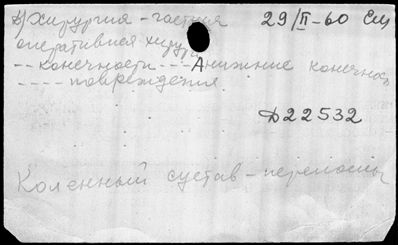 А) Хирургия - частная 29/II-60 Ем
оперативная хирург
-- конечности --- Анижние конечнос
---- повреждения.
Д22532
Коленный сустав - переломы